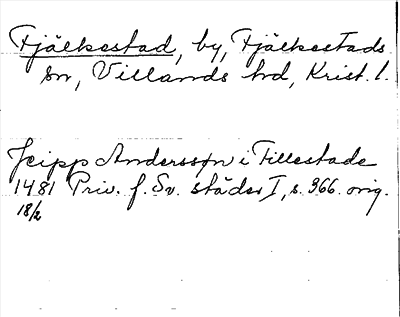 Fjälkestad, by, Fjälkestads
sn, Villands hd, Krist. l.
Jeipp Andersson i Fillestade
1481 Priv. f. Sv. städer I, s. 366. orig.
18/2